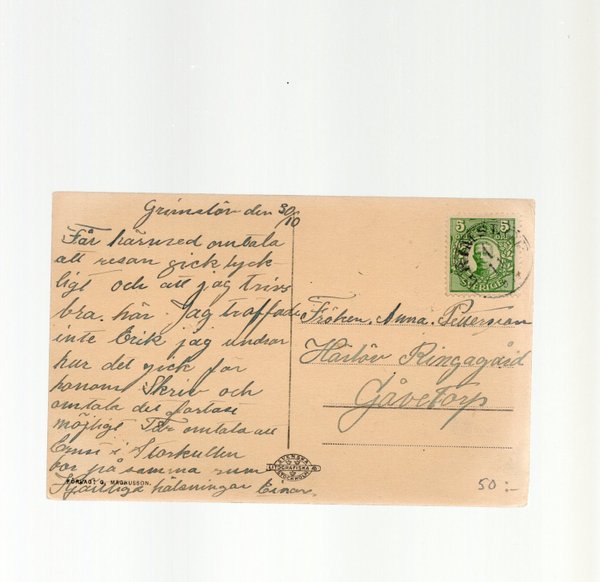 Grimslöv den 30/10
Får härmed omtala
att resan gick lyck
ligt och att jag trivs
bra. här. Jag träffade
inte Erik jag undrar
hur det gick för
honom Skriv och
omtala det fortast
möjligt Får omtala att
Ernst i Storkullen
bor på samma rum
Hjärtliga hälsningar Einar.
FÖRLAG: G. MAGNUSSON.
SVENSKA
LITOGRAFISKA AB
STOCKHOLM
5 5
SVERIGE
Fröken. Anna. Petersson
Härlöv Ringagård
Gåvetorp
50:-